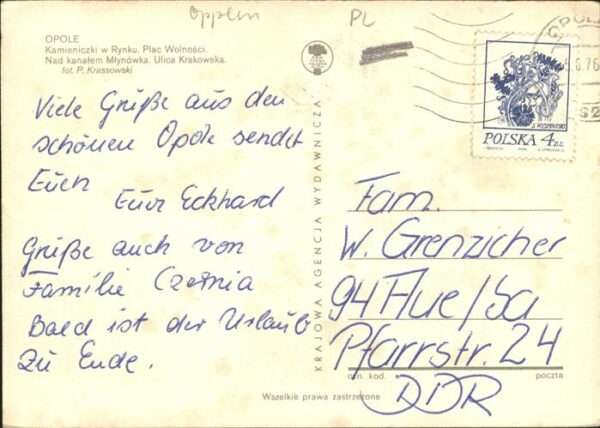 Opplen
PL
OPOLE
Kamieniczki w Rynku. Plac Wolności.
Nad kanałem Młynówka. Ulica Krakowska.
fot. P. Krassowski
Viele Grüße aus den
schönen Opole sendet
Euch
Euer Eckhard
Grüße auch von
Familie Czernia
Bald ist der Urlaub
zu Ende.
KRAJOWA AGENCJA WYDAWNICZA
OPOLE
6.76
POLSKA 4 ZŁ
Fam.
W. Grenzicher
94 Aue/Sa
Pfarrstr. 24
ozn. kod.
poczta
DDR
Wszelkie prawa zastrzeżone